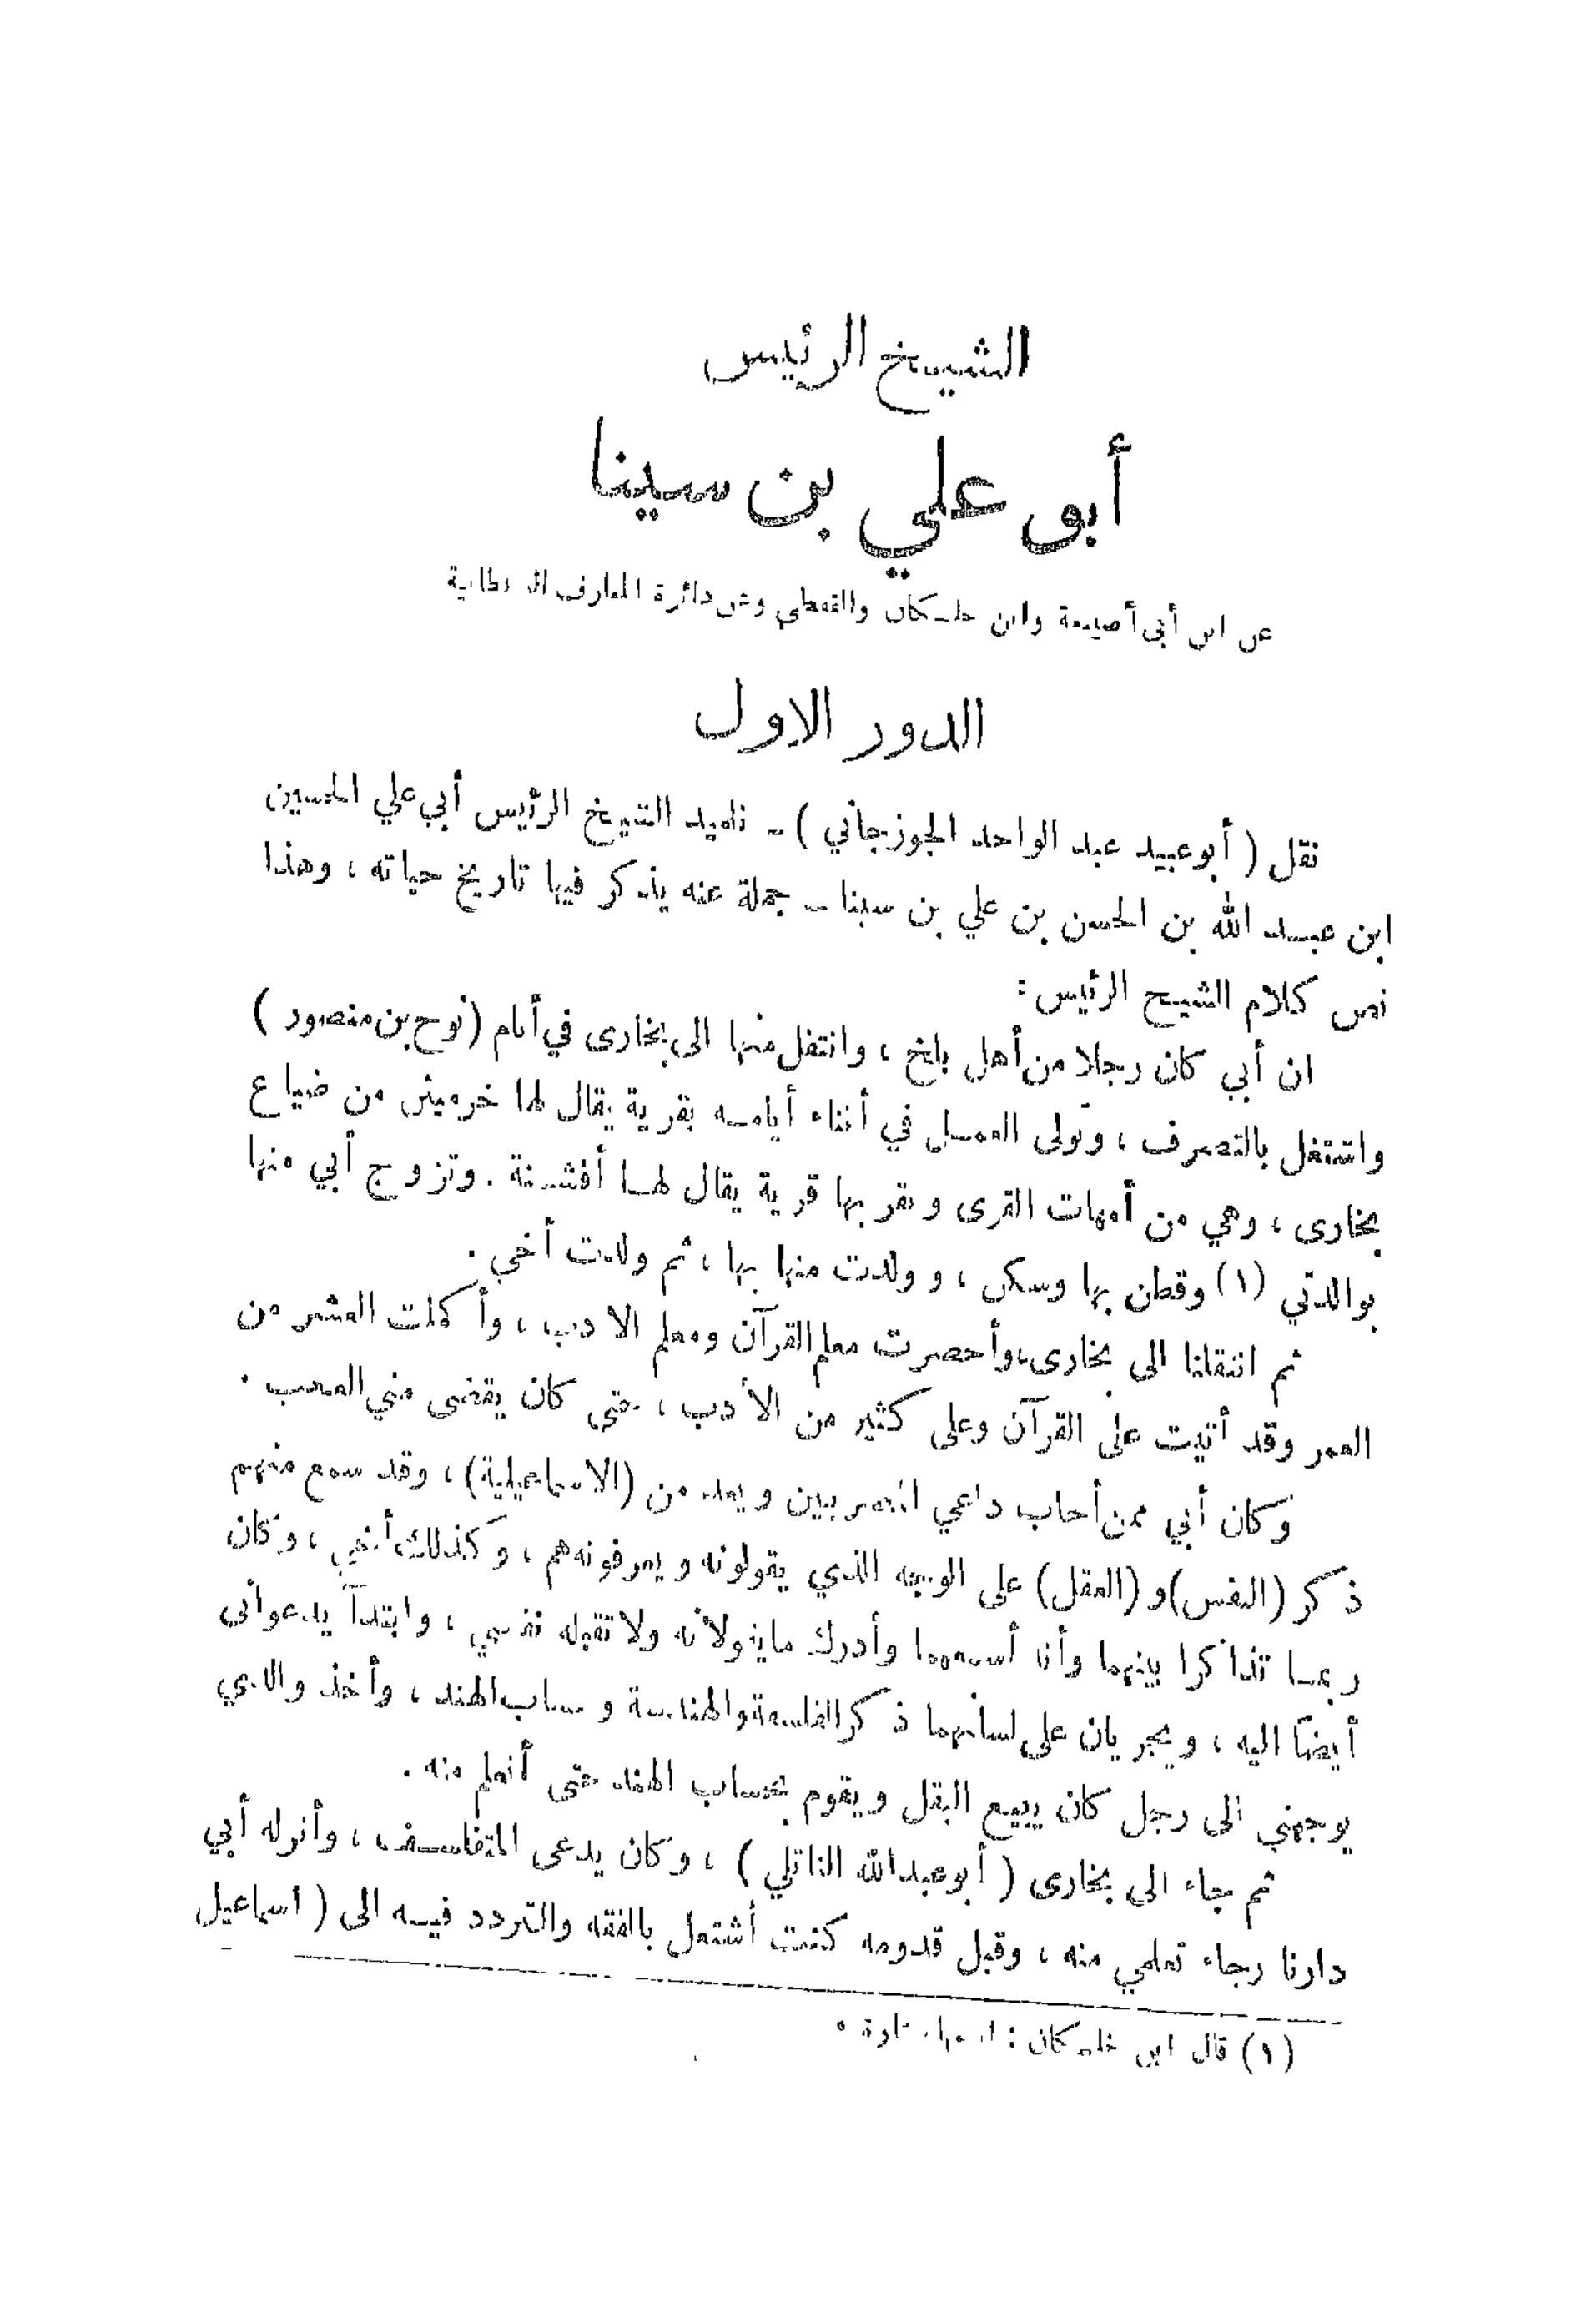 الشيخ الرئيس
أبو علي بن سينا
عن ابن أبي أصيبعة وابن خلكان والقفطي وعن دائرة المعارف البريطانية
الدور الاول
نقل ( أبو عبيد عبد الواحد الجوزجاني ) ـ تلميذ الشيخ الرئيس أبي علي الحسين
ابن عبد الله بن الحسن بن علي بن سينا ـ جملة عنه يذكر فيها تاريخ حياته ، وهذا
نص كلام الشيخ الرئيس :
ان أبي كان رجلا من أهل بلخ ، وانتقل منها الى بخارى في أيام (نوح بن منصور )
واشتغل بالتصرف ، وتولى العمل في أثناء أيامه بقرية يقال لها خرميثن من ضياع
بخارى ، وهي من أمهات القرى وبقربها قرية يقال لها أفشنة . وتزوج أبي منها
بوالدتي (١) وقطن بها وسكن ، وولدت منها بها ، ثم ولدت أخي .
ثم انتقلنا الى بخارى، وأحضرت معلم القرآن ومعلم الادب ، وأكملت العشر من
العمر وقد أتيت على القرآن وعلى كثير من الأدب ، حتى كان يقضى مني العجب .
وكان أبي ممن أجاب داعي المصريين ويعد من (الاسماعيلية) ، وقد سمع منهم
ذكر (النفس) و (العقل) على الوجه الذي يقولونه ويعرفونه هم ، وكذلك أخي ، وكان
ربما تذاكرا بينهما وأنا أسمعهما وأدرك ما يقولانه ولا تقبله نفسي ، وابتدآ يدعوانى
أيضاً اليه ، ويجريان على لسانهما ذكر الفلسفة والهندسة وحساب الهند ، وأخذ والدي
يوجهني الى رجل كان يبيع البقل ويقوم بحساب الهند حتى أتعلم منه .
ثم جاء الى بخارى ( أبو عبدالله الناتلي ) ، وكان يدعى المتفلسف ، وأنزله أبي
دارنا رجاء تعلمي منه ، وقبل قدومه كنت أشتغل بالفقه والتردد فيه الى ( اسماعيل
(١) قال ابن خلكان : اسمها ستارة .